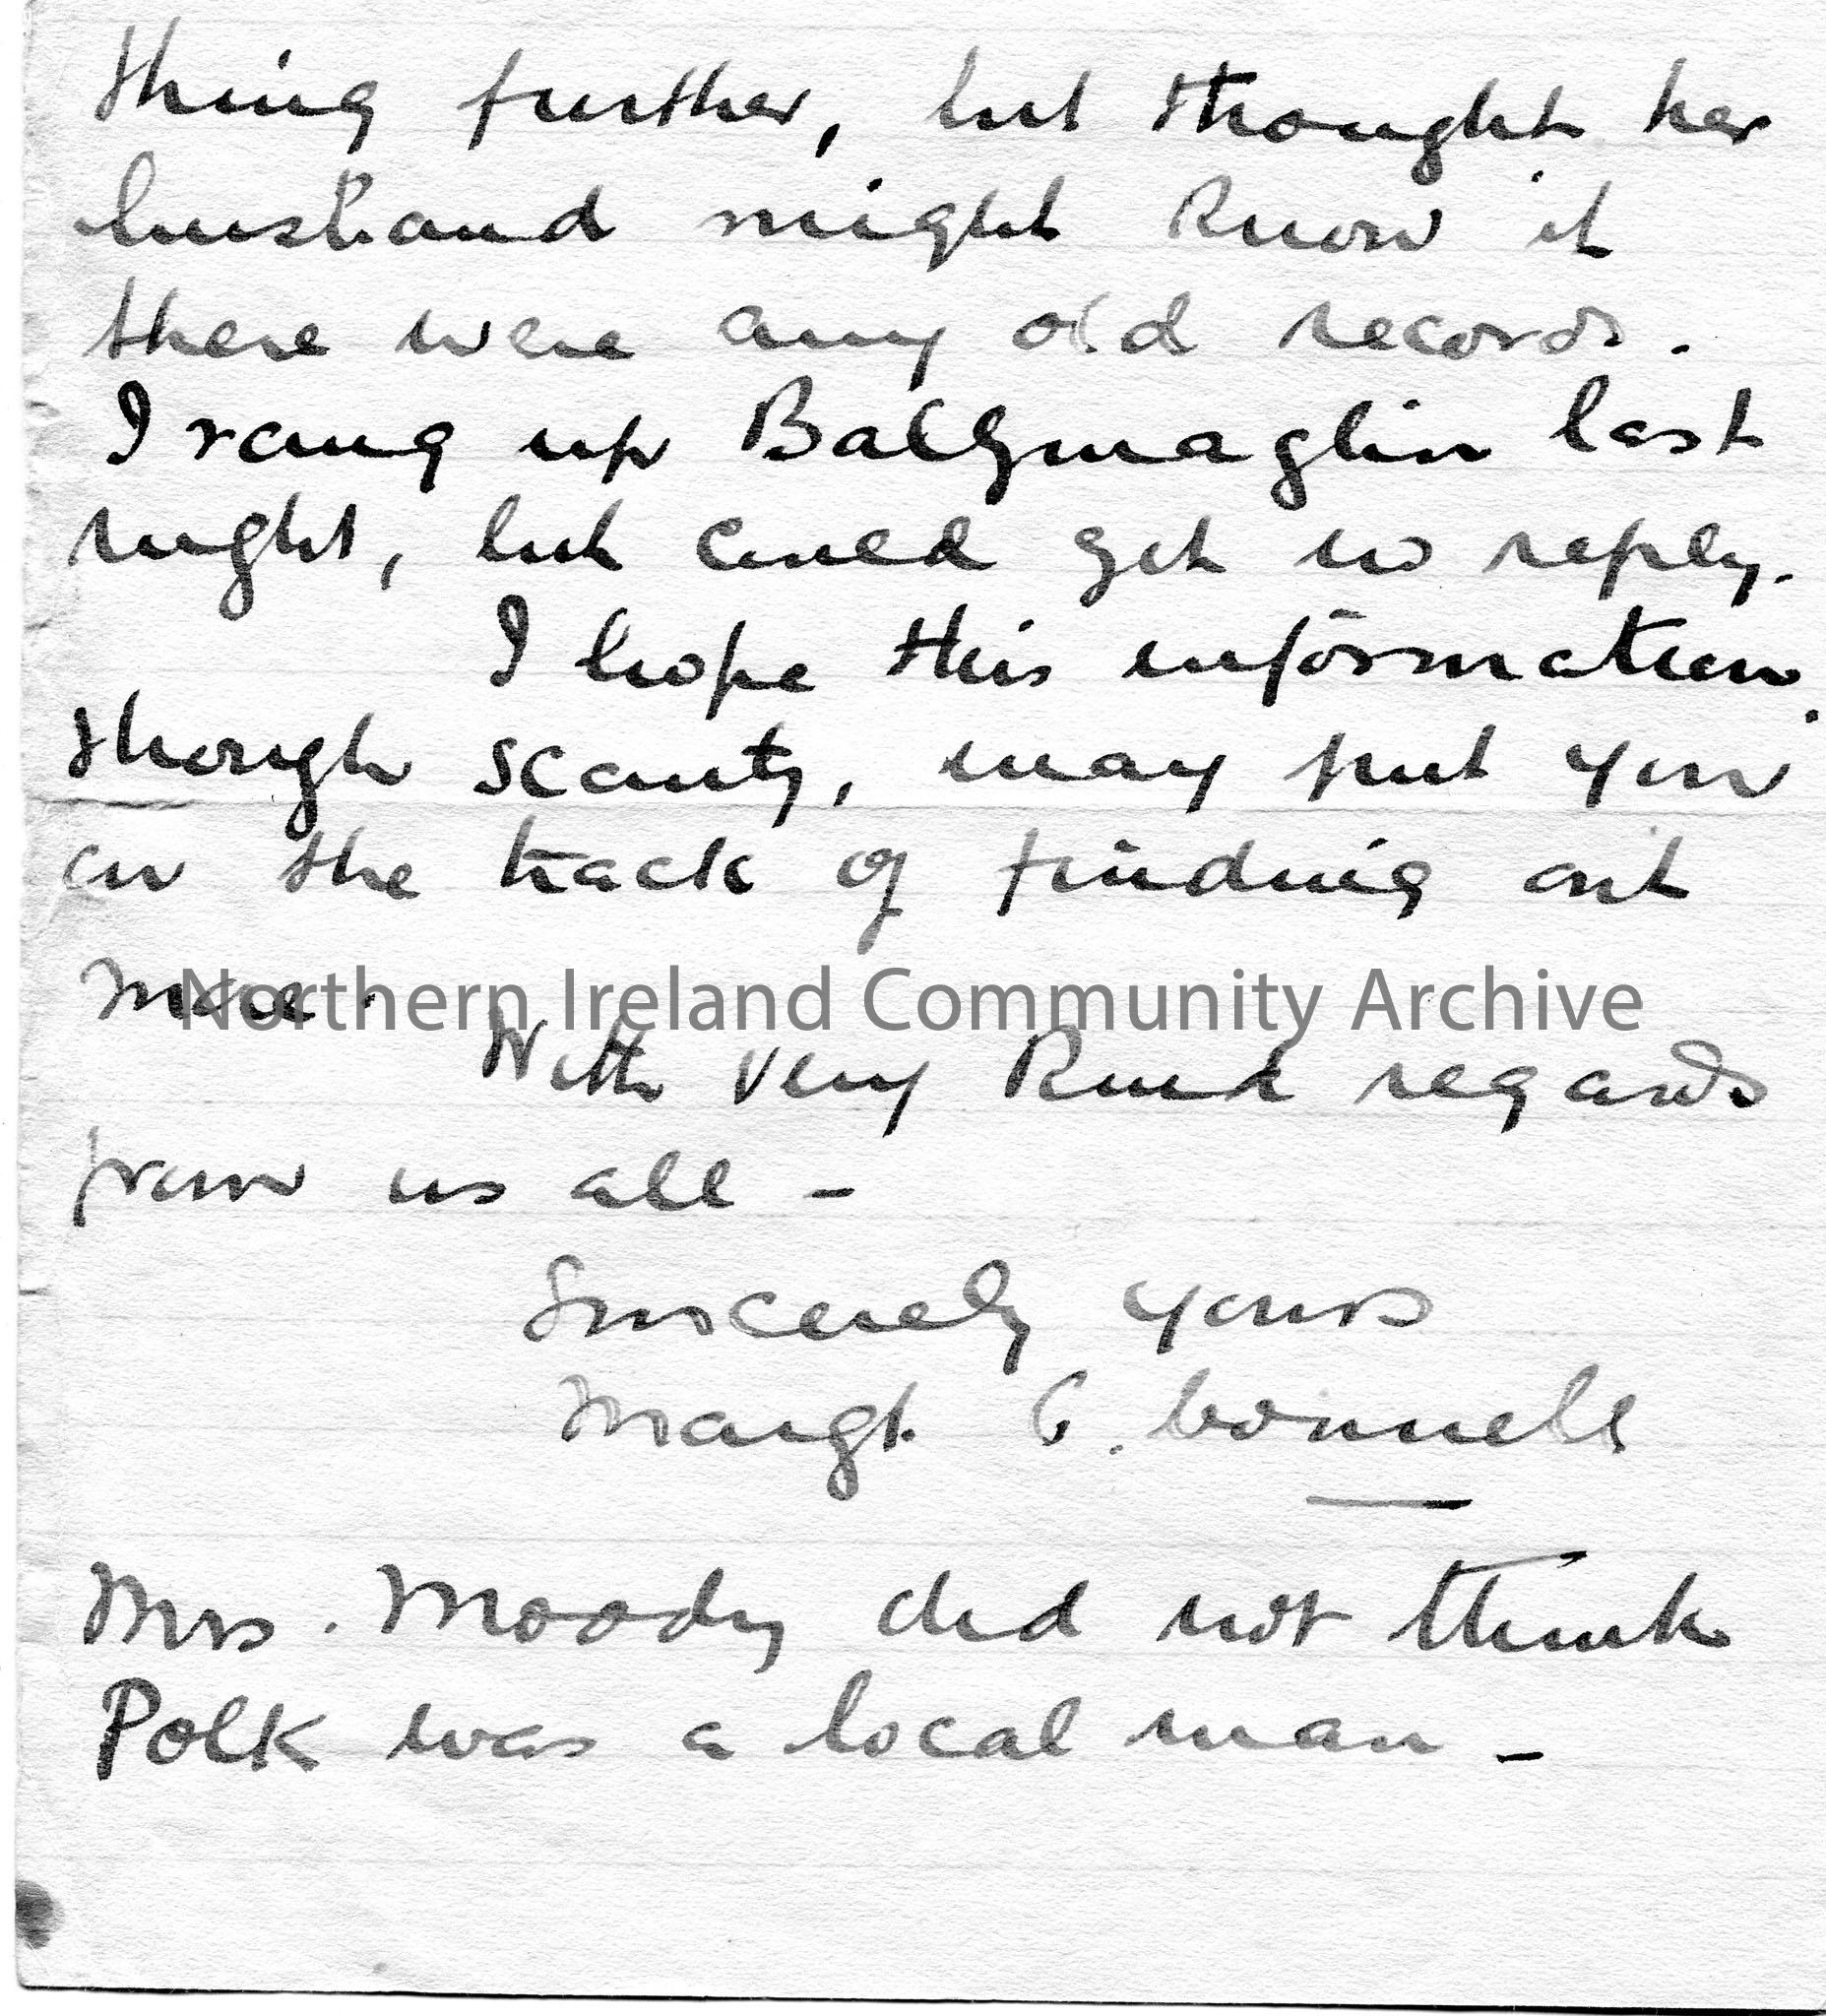 thing further, but thought her
husband might know if
there were any old records.
I rang up Ballymaglin last
night, but could get no reply.
I hope this information
though scanty, may put you
on the track of finding out
more.
Northern Ireland Community Archive
With very kind regards
from us all -
Sincerely yours
Margt. C. Connell
Mrs. Moody did not think
Polk was a local man -